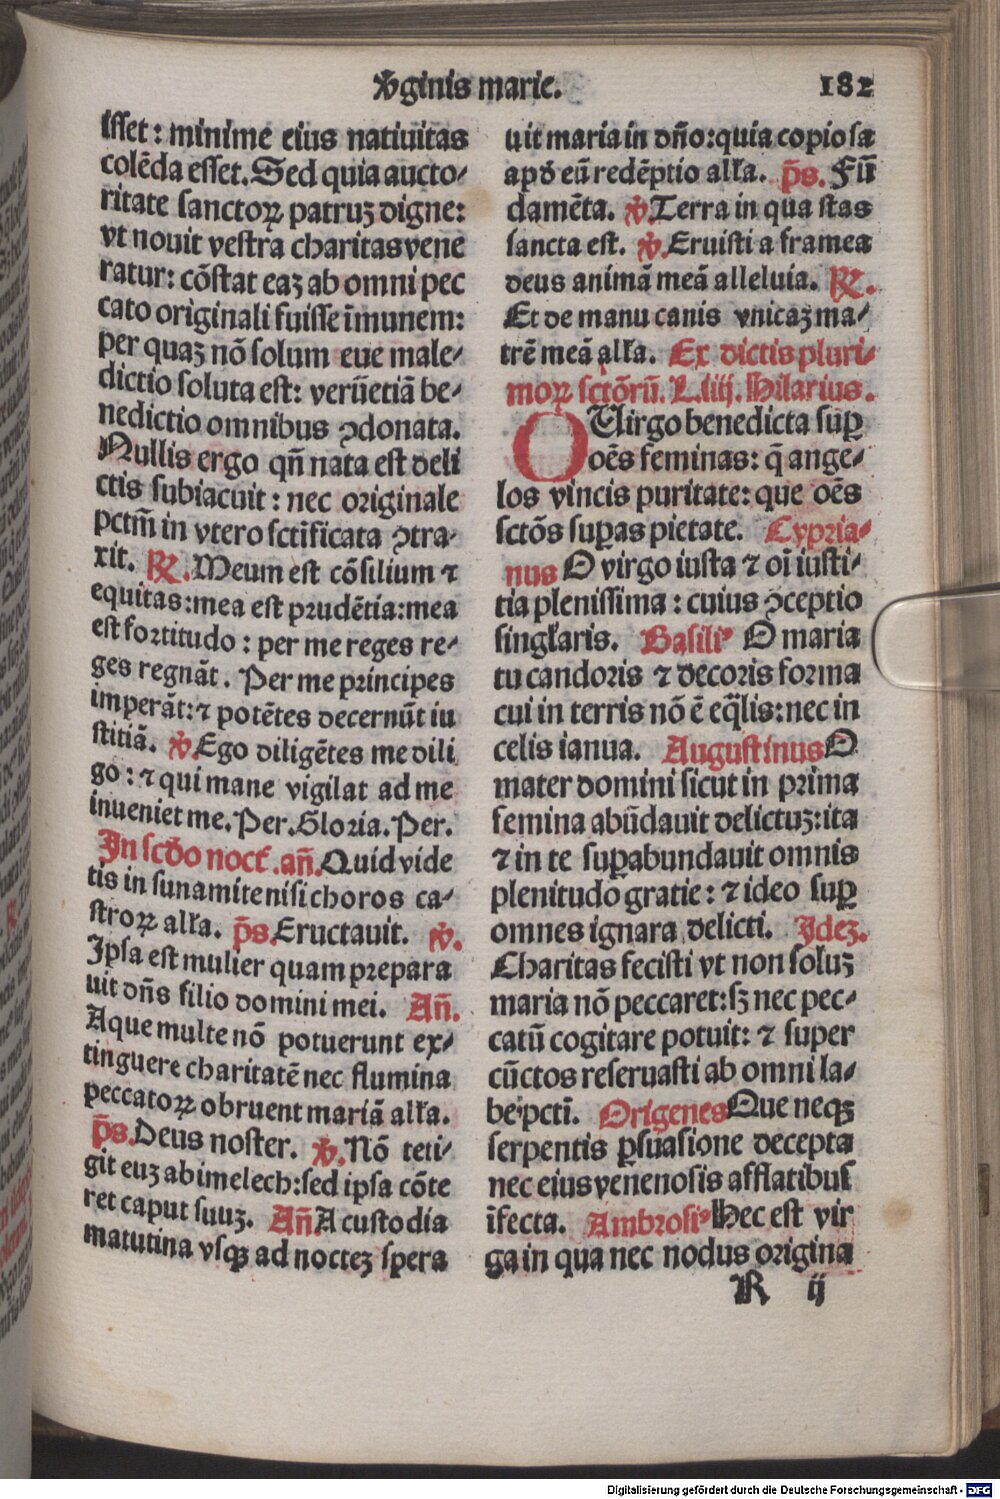 v̄ginis marie.
182
isset: minime eius natiuitas
colēda esset. Sed quia aucto-
ritate sanctoꝝ patruꝫ digne:
vt nouit vestra charitas vene
ratur: cōstat eaꝫ ab omni pec
cato originali fuisse īmunem:
per quaꝫ nō solum eue male-
dictio soluta est: verūetiā be-
nedictio omnibus ↄdonata.
Nullis ergo qn̄ nata est deli
ctis subiacuit: nec originale
pctm̄ in vtero sctīficata ↄtra-
xit. ℟. Meum est cōsilium ⁊
equitas: mea est prudētia: mea
est fortitudo: per me reges re-
ges regnāt. Per me principes
imperāt: ⁊ potētes decernūt iu
stitiā. ℣. Ego diligētes me dili
go: ⁊ qui mane vigilat ad me
inueniet me. Per. Gloria. Per.
In scdo noct̄. an̄. Quid vide
tis in sunamite nisi choros ca-
stroꝝ alła. p̄s. Eructauit. ℣.
Ipsa est mulier quam prepara
uit dn̄s filio domini mei. An̄.
Aque multe nō potuerunt ex-
tinguere charitatē nec flumina
peccatoꝝ obruent mariā alła.
p̄s. Deus noster. ℣. Nō teti-
git euꝫ abimelech: sed ipsa cōte
ret caput suuꝫ. An̄. A custodia
matutina vsqꝫ ad nocteꝫ spera
uit maria in dn̄o: quia copiosa
apd̓ eū redēptio alła. p̄s. Fū
damēta. ℣. Terra in qua stas
sancta est. ℣. Eruisti a framea
deus animā meā alleluia. ℟.
Et de manu canis vnicaꝫ ma-
trē meā alła. Ex dictis pluri-
moꝝ sctōrū. L. liij. Hilarius.
O Uirgo benedicta suꝑ
oēs feminas: q̄ ange-
los vincis puritate: que oēs
sctōs suꝑas pietate. Cypria-
nus O virgo iusta ⁊ oī iusti-
tia plenissima: cuius ↄceptio
singłaris. Basiliꝰ O maria
tu candoris ⁊ decoris forma
cui in terris nō ē eq̄lis: nec in
celis ianua. Augustinus O
mater domini sicut in prima
femina abūdauit delictuꝫ: ita
⁊ in te suꝑabundauit omnis
plenitudo gratie: ⁊ ideo suꝑ
omnes ignara delicti. Ideꝫ.
Charitas fecisti vt non soluꝫ
maria nō peccaret: sꝫ nec pec-
catū cogitare potuit: ⁊ super
cūctos reseruasti ab omni la-
be pcti̅. Origenes Que neqꝫ
serpentis ꝑsuasione decepta
nec eius venenosis afflatibus
īfecta. Ambrosiꝰ Hec est vir
ga in qua nec nodus origina
R ij
Digitalisierung gefördert durch die Deutsche Forschungsgemeinschaft - DFG